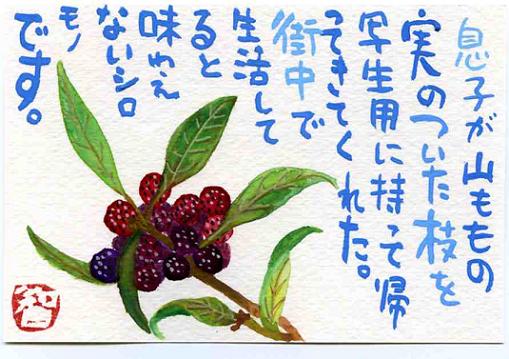 息子が山ももの
実のついた枝を
写生用に持って帰
ってきてくれた。
街中で
生活して
ると
味わえ
ないシロ
モノ
です。
智